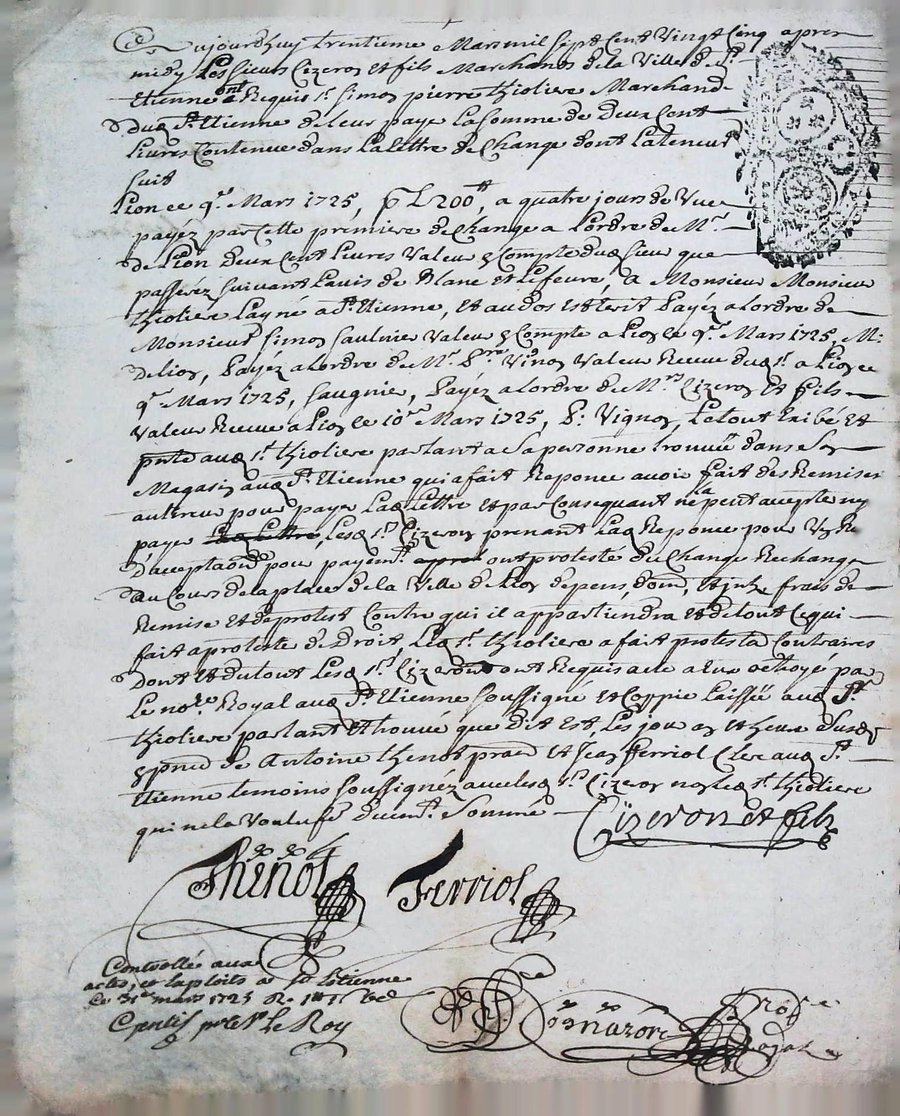 Ce Aujourdhuy trentieme Mars mil Sept Cent Vingt Cinq apres
midy Les Sieurs Cizeron et fils Marchands de la Ville de St
Etienne ont Requis Sr Simon pierre thioliere Marchand
dud St Etienne de leur payer La Somme de Deux Cent
Livres Contenue dans La lettre de Change dont La teneur
suit
Lion ce 9e Mars 1725, p L 200tt, a quatre jours de Vue
payéz par Cette premiere de Change a Lordre de Mr
De Lion Deux Cent Livres Valeur Compte dud Sieur que
passeréz Suivant Lavis de Blanc et Lefevre, A Monsieur Monsieur
thioliere Layné a St Etienne, et au dos est Ecrit Payéz a Lordre de
Monsieur Simon Saulnier Valeur Compte a Lion le 9e Mars 1725, M:
Delion, Payéz a Lordre de Mr Vinon Valeur Receue dud Sr a Lion ce
9e Mars 1725, Saugnie, Payéz a Lordre de Mrs Cizeron et fils
Valeur Receue a Lion le 10e Mars 1725, P: Vignon, Le tout Exibé et
aud Sr thioliere parlant a Sa personne trouvée dans Son
Magasin aud St Etienne qui a fait Reponce avoir fait des Remises
pour payer Lad Lettre et par Consequant ne peut accepter ny
payer Lad Lettre, Lesd Srs Cizeron prenant Lad Reponce pour
D'acceptaon pour payemt apres ont protesté du Change Rechange
au Cours de la place de la Ville de Lion depens, dom, et frais de
Remise et de protest Contre qui il appartiendra et de tout Ce qui
fait a protester de Droit, Led Sr thioliere a fait protesta Contraires
Dont et du tout Lesd Srs Cizeron ont Requis acte a Eux octroyé par
Le nore Royal aud St Etienne Soussigné et Coppie Laissée aud Sr
thioliere parlant et trouvé que Dit Est, Les jour an et heure Susd
de Antoine thenot et Jean Ferriol Clerc aud St
Etienne temoins Soussignéz avec lesd Srs Cizeron non led Sr thioliere
qui ne la Voulu fe Duemt Sommé
Cizeron et fils
Thenot Ferriol
Controllé aux
actes, et Exploits a St Estienne
Ce 31e mars 1725
Le Roy